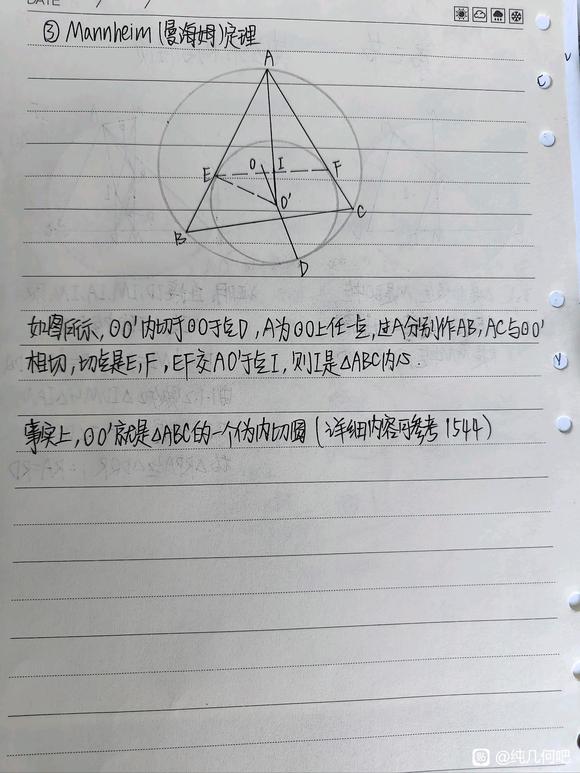 DATE
③ Mannheim (曼海姆)定理
A
E
O
I
F
O'
B
C
D
如图所示，⊙O'内切于⊙O于点D，A为⊙O上任一点，过A分别作AB，AC与⊙O'
相切，切点是E，F，EF交AO'于点I，则I是△ABC内心.
事实上，⊙O'就是△ABC的一个伪内切圆（详细内容可参考1544）
贴 @纯几何吧